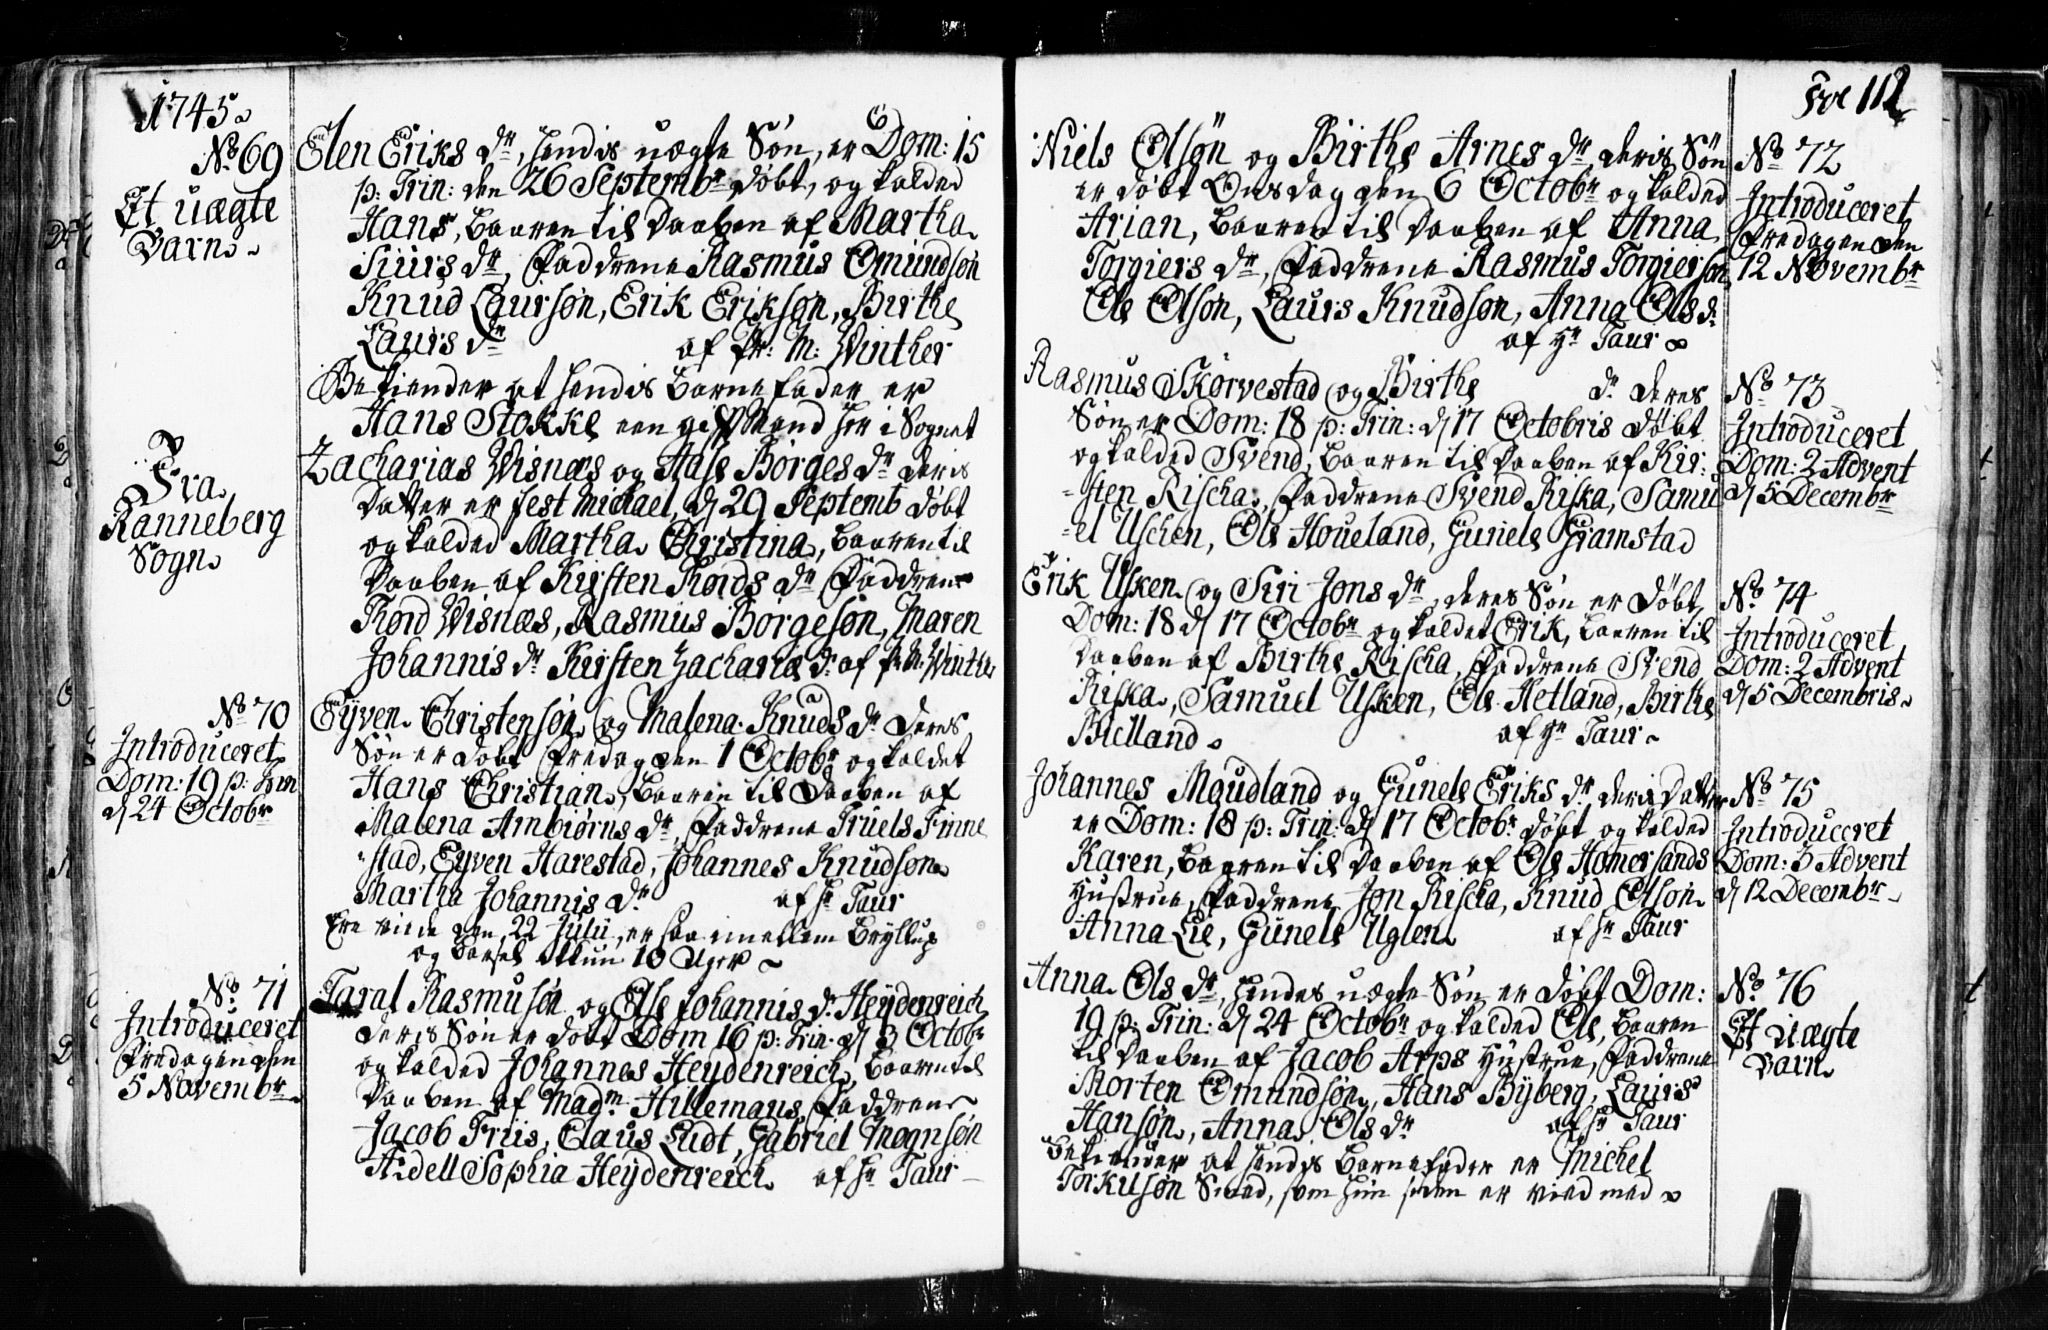 1745
No 69
Et uægte
Barn
Elen Eriks dr, hendis uægte Søn, er Dom: 15
p: Trin: den 26 Septembr døbt, og kalded
Hans, baaren til Daaben af Martha
Siurs dr, Faddrene Rasmus Omundsøn
Knud Laursøn, Erik Eriksøn, Birthe
Laurs dr af Pr: M: Winther
Bekiender at hendis barnefader er
Hans Stokke een gift Mand her i Sognet
Fra
Ranneberg
Sogn
Zacharias Visnæs og Aase Børges dr deris
Datter er fest Michael, d 29 Septemb døbt
og kalded Martha Christina, baaren til
Daaben af Kirsten Thords dr Faddrene
Thord Visnæs, Rasmus Børgesøn, Maren
Johannis dr Kirsten Zachariæ d: af Pr. M: Winther
No 70
Introduceret
Dom: 19 p: Trin
d 24 Octobr
Eyven Christensøn og Malena Knuds dr deres
Søn er døbt Fredag den 1 Octobr og kaldet
Hans Christian, baaren til Daaben af
Malena Ambiørns dr, Faddrene Truels Finne
-stad, Eyven Harestad, Johannes Knudsøn
Martha Johannis dr af Hr Taur
Ere viede den 22 Julii, er saa imellem Bryllup
og barsel ikkun 10 Uger
No 71
Introduceret
Fredagen den
5 Novembr
Taral Rasmusøn og Else Johannis dr Heydenreich
deris Søn er døbt Dom 16 p: Trin. d 3 Octobr
og kalded Johannes Heydenreich, baaren til
Daaben af Madm Hillemans, Faddrene
Jacob Friis, Claus Lidt, Gabriel Mognsøn
Aidell Sophia Heydenreich af Hr Taur
Fol 112
Niels Olsøn og Birthe Arnes dr, deris Søn
er døbt Onsdag den 6 Octobr og kalded
Arian, baaren til Daaben af Anna
Torgiers dr, Faddrene Rasmus Torgiersøn
Ole Olsøn, Laurs Knudsøn, Anna Ols d:
af Hr Taur
No 72
Introduceret
Fredagen den
12 Novembr
Rasmus Skørvestad og Birthe dr deres
Søn er Dom: 18 p: Trin: d 17 Octobris døbt
og kalded Svend, baaren til Daaben af Kir:
-sten Rischa, Faddrene Svend Riska, Samu
-el Uschen, Ole Houeland, Gunele Gramstad
No 73
Introduceret
Dom: 2 Advent
d 5 Decembr
Erik Usken og Siri Jons dr, deres Søn er døbt
Dom: 18 d 17 Octobr og kaldet Erik, baaren til
Daaben af Birthe Rischa, Faddrene Svend
Riska, Samuel Usken, Ole Hetland, Birthe
Bielland af Hr Taur
No 74
Introduceret
Dom: 2 Advent
d 5 Decembris
Johannes Maudland og Gunele Eriks dr deris Datter
er Dom: 18 p: Trin: d 17 Octobr døbt og kalded
Karen, baaren til Daaben af Ole Hamersands
Hustrue, Faddrene Jon Rischa, Knud Olsøn
Anna Lie, Gunele Uglen af Hr Taur
No 75
Introduceret
Dom: 3 Advent
d 12 Decembr
Anna Ols dr, hendes uægte Søn er døbt Dom:
19 p: Trin: d 24 Octobr og kalded Ole, baaren
til Daaben af Jacob Arps Hustrue, Faddrene
Morten Omundsøn, Hans Byberg, Laurs
Hansøn, Anna Ols dr af Hr Taur
bekiender at hendis barnefader er Michel
Torkilsøn Smed, som hun siden er vied med
No 76
Et uægte
Barn